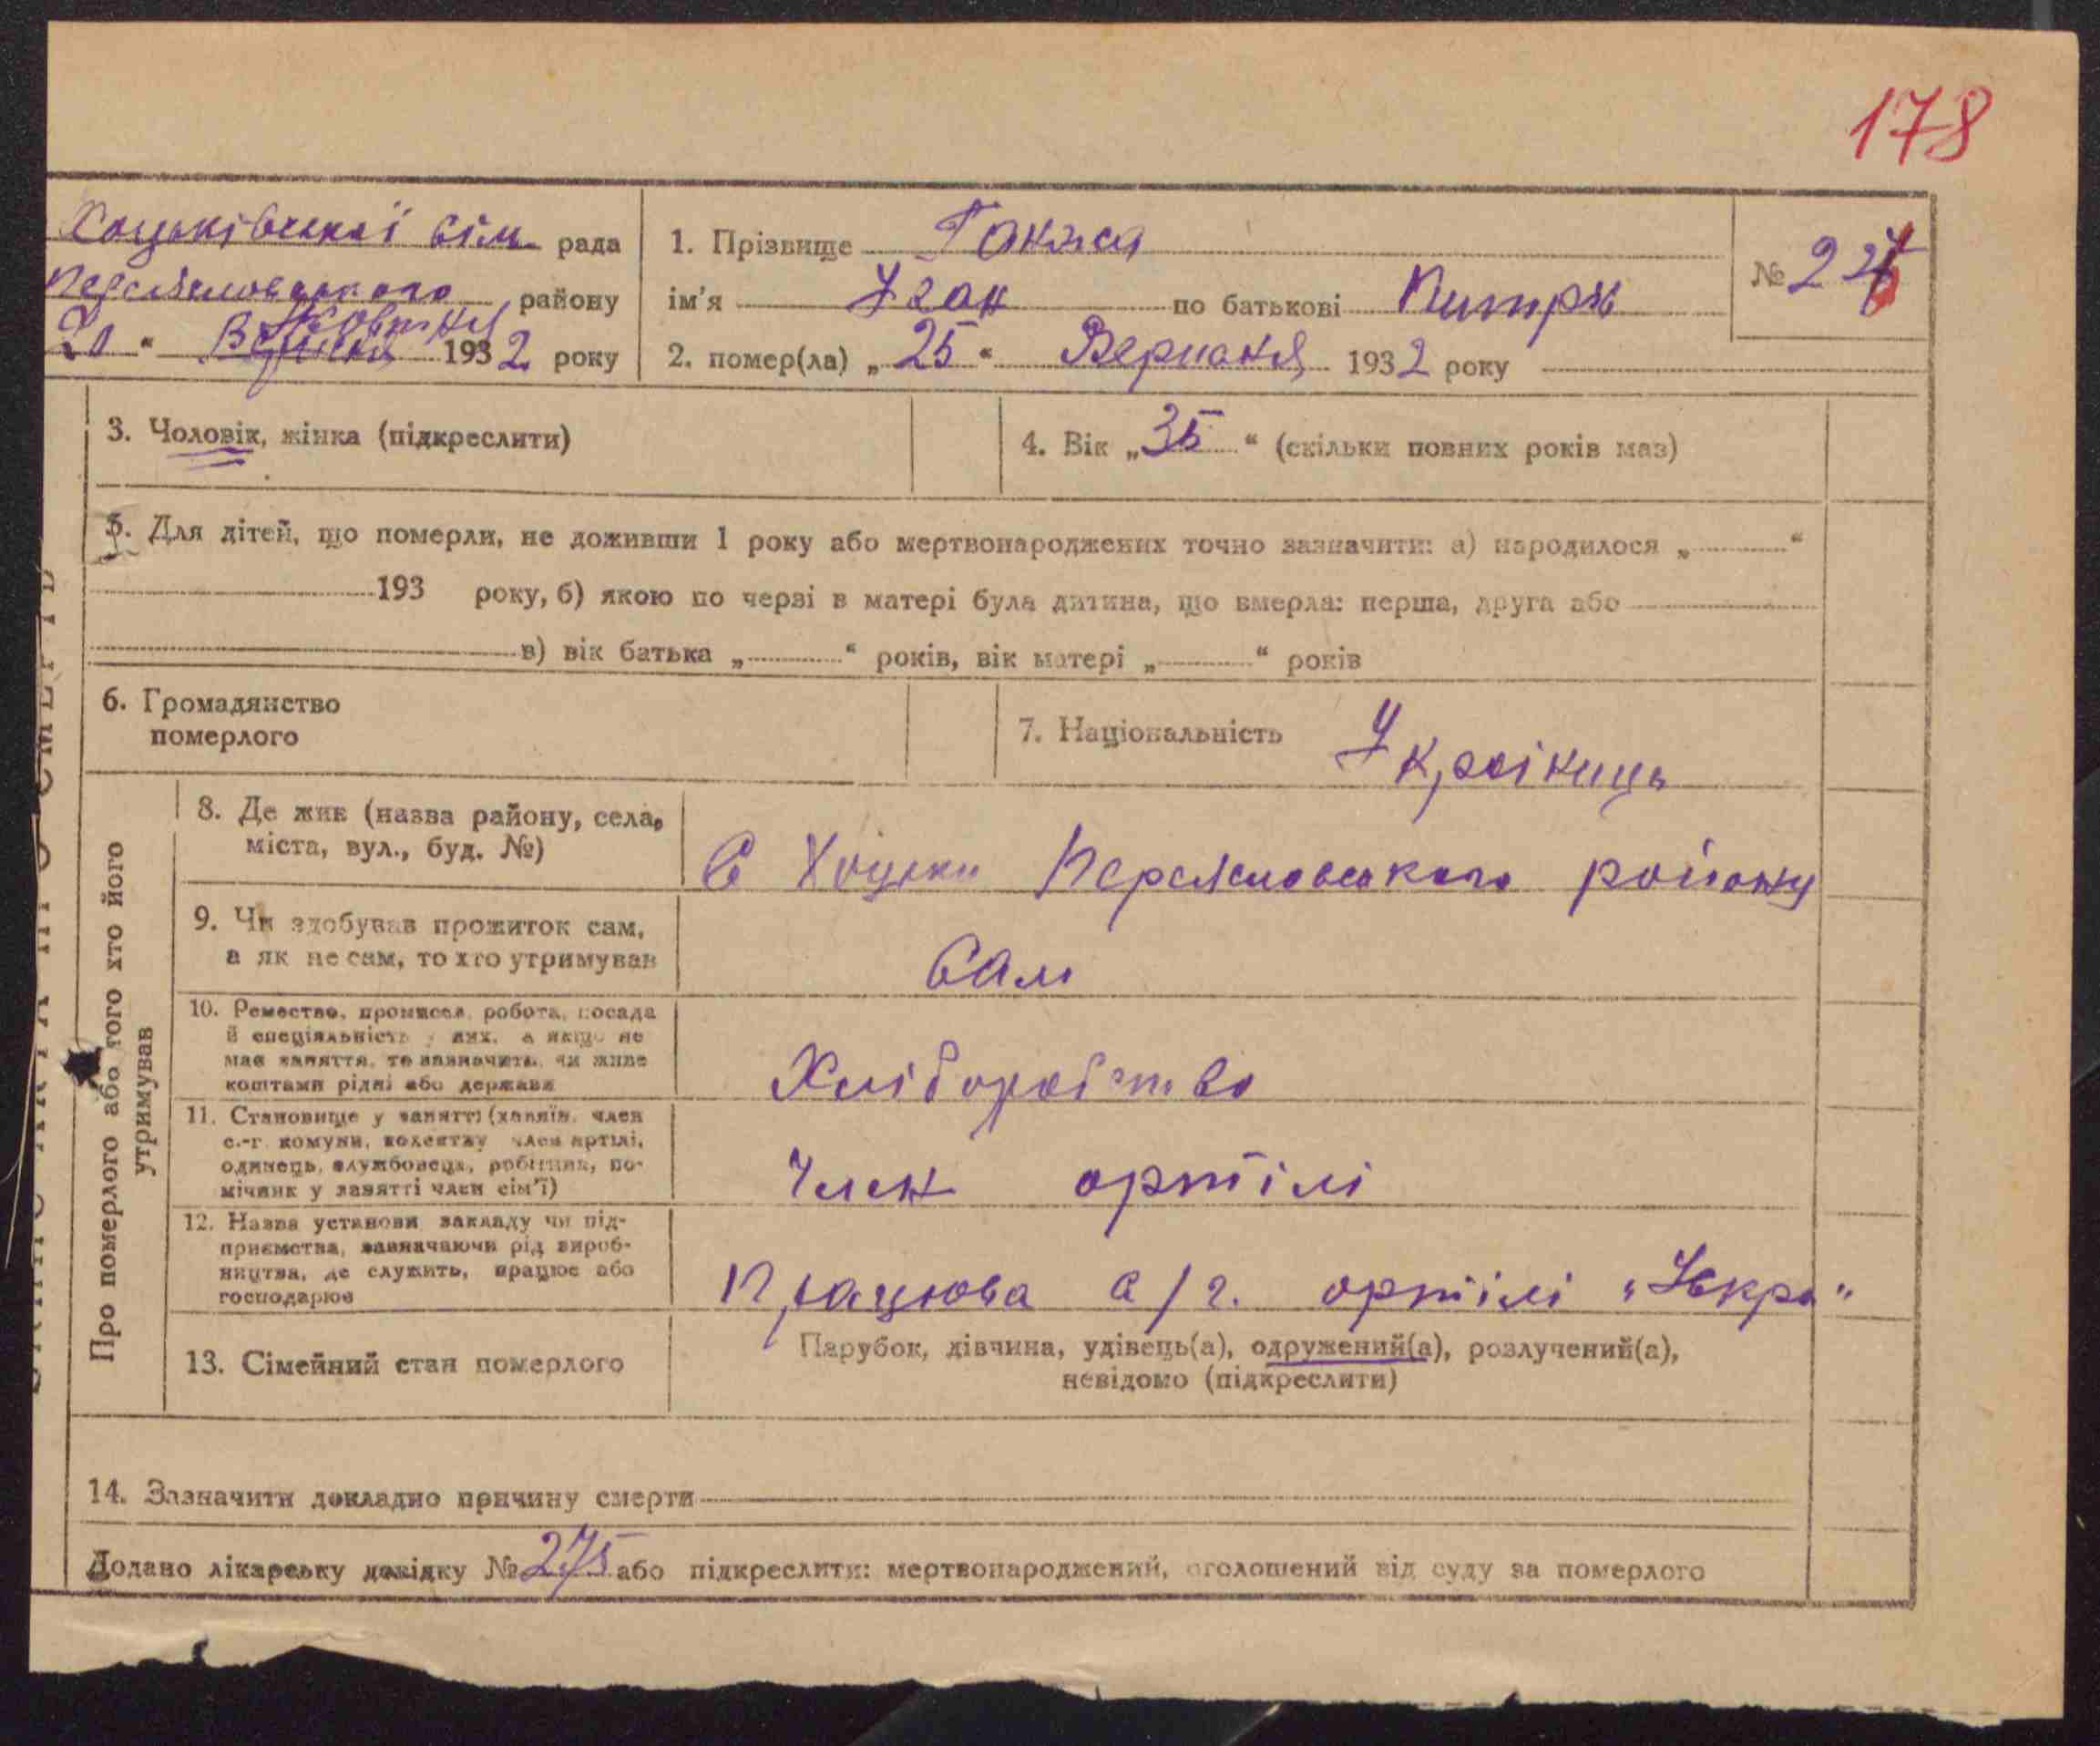 178
Хоцьківської сіл. рада
Переяславського району
20 " Жовтня Вересня 1932 року
1. Прізвище Ганжа
№ 22
ім'я Іван по батькові Питрів
2. помер(ла) „ 25 “ Верисня 1932 року
3. Чоловік, жінка (підкреслити)
4. Вік „ 35 “ (скільки повних років маз)
5. Для дітей, що померли, не доживши 1 року або мертвонароджених точно зазначити: а) народилося „ “
193 року, б) якою по черзі в матері була дитина, що вмерла: перша, друга або
в) вік батька „ “ років, вік матері „ “ років
6. Громадянство
померлого
7. Національність Українець
Про померлого або того хто його
утримував
8. Де жив (назва району, села,
міста, вул., буд. №)
С Хоцьки Переяславського району
9. Чи здобував прожиток сам,
а як не сам, то хто утримував
Сам
10. Ремество, промисел, робота, посада
й спеціяльність у них, а якщо не
має заняття, то зазначить, чи живе
коштами рідні або держави
Хліборобство
11. Становище у занятті (хазяїн, член
с.-г. комуни, колективу член артілі,
одинець, службовець, робітник, по-
мічник у занятті член сім'ї)
Член артілі
12. Назва установи закладу чи під-
приємства, зазначаючи рід вироб-
ництва, де служить, працює або
господарює
Працюва с/г. артілі „Іскра“
13. Сімейний стан померлого
Парубок, дівчина, удівець(а), одружений(а), розлучений(а),
невідомо (підкреслити)
14. Зазначити докладно причину смерти
Додано лікарську довідку № 275 або підкреслити: мертвонароджений, оголошений від суду за померлого